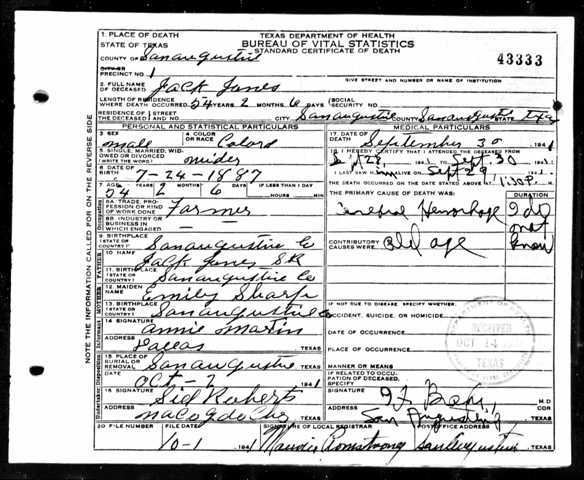 TEXAS DEPARTMENT OF HEALTH
BUREAU OF VITAL STATISTICS
STANDARD CERTIFICATE OF DEATH
43333
1. PLACE OF DEATH
STATE OF TEXAS
COUNTY OF San augustine
CITY OR
PRECINCT NO. 1
GIVE STREET AND NUMBER OR NAME OF INSTITUTION
2. FULL NAME OF DECEASED Jack Jones
LENGTH OF RESIDENCE WHERE DEATH OCCURRED 54 YEARS 2 MONTHS 6 DAYS SOCIAL SECURITY NO.
RESIDENCE OF THE DECEASED STREET AND NO. CITY San augustine COUNTY San augustine STATE Texas
PERSONAL AND STATISTICAL PARTICULARS
3. SEX male
4. COLOR OR RACE Colord
5. SINGLE, MARRIED, WIDOWED OR DIVORCED (WRITE)
6. DATE OF BIRTH 7-24-1887
7. AGE 54 YEARS 2 MONTHS 6 DAYS IF LESS THAN 1 DAY HOURS MIN.
8A. TRADE, PROFESSION OR KIND OF WORK DONE Farmer
8B. INDUSTRY OR BUSINESS IN WHICH ENGAGED — —
9. BIRTHPLACE (STATE OR COUNTRY) San augustine Co
10. NAME Jack Jones SR
11. BIRTHPLACE (STATE OR COUNTRY) San augustine Co
12. MAIDEN NAME Emily Sharp
13. BIRTHPLACE (STATE OR COUNTRY) San augustine Co
14. SIGNATURE Annie Martin
ADDRESS Dallas TEXAS
15. PLACE OF BURIAL OR REMOVAL San augustine TEXAS
DATE Oct-2 1941
16. SIGNATURE Sid Roberts
ADDRESS Nacogdoches TEXAS
MEDICAL PARTICULARS
17. DATE OF DEATH September 30 1941
18. I HEREBY CERTIFY THAT I ATTENDED THE DECEASED FROM
Sept 28, 1941 TO Sept. 30 1941
I LAST SAW H ALIVE ON Sept 29, 1941
THE DEATH OCCURRED ON THE DATE STATED ABOVE AT
THE PRIMARY CAUSE OF DEATH WAS: DURATION
Cerebral Hemorrhage I do not know
CONTRIBUTORY CAUSES WERE: old age
IF NOT DUE TO DISEASE, SPECIFY WHETHER:
ACCIDENT, SUICIDE, OR HOMICIDE
DATE OF OCCURRENCE
PLACE OF OCCURRENCE
MANNER OR MEANS
IF RELATED TO OCCUPATION OF DECEASED, SPECIFY
RECEIVED
OCT 14
TEXAS
SIGNATURE M.D.
ADDRESS San Augustine, TEXAS
20. FILE NUMBER FILE DATE 10-1 1941
SIGNATURE OF LOCAL REGISTRAR POSTOFFICE ADDRESS
Armstrong San Augustine TEXAS
NOTE THE INFORMATION CALLED FOR ON THE REVERSE SIDE